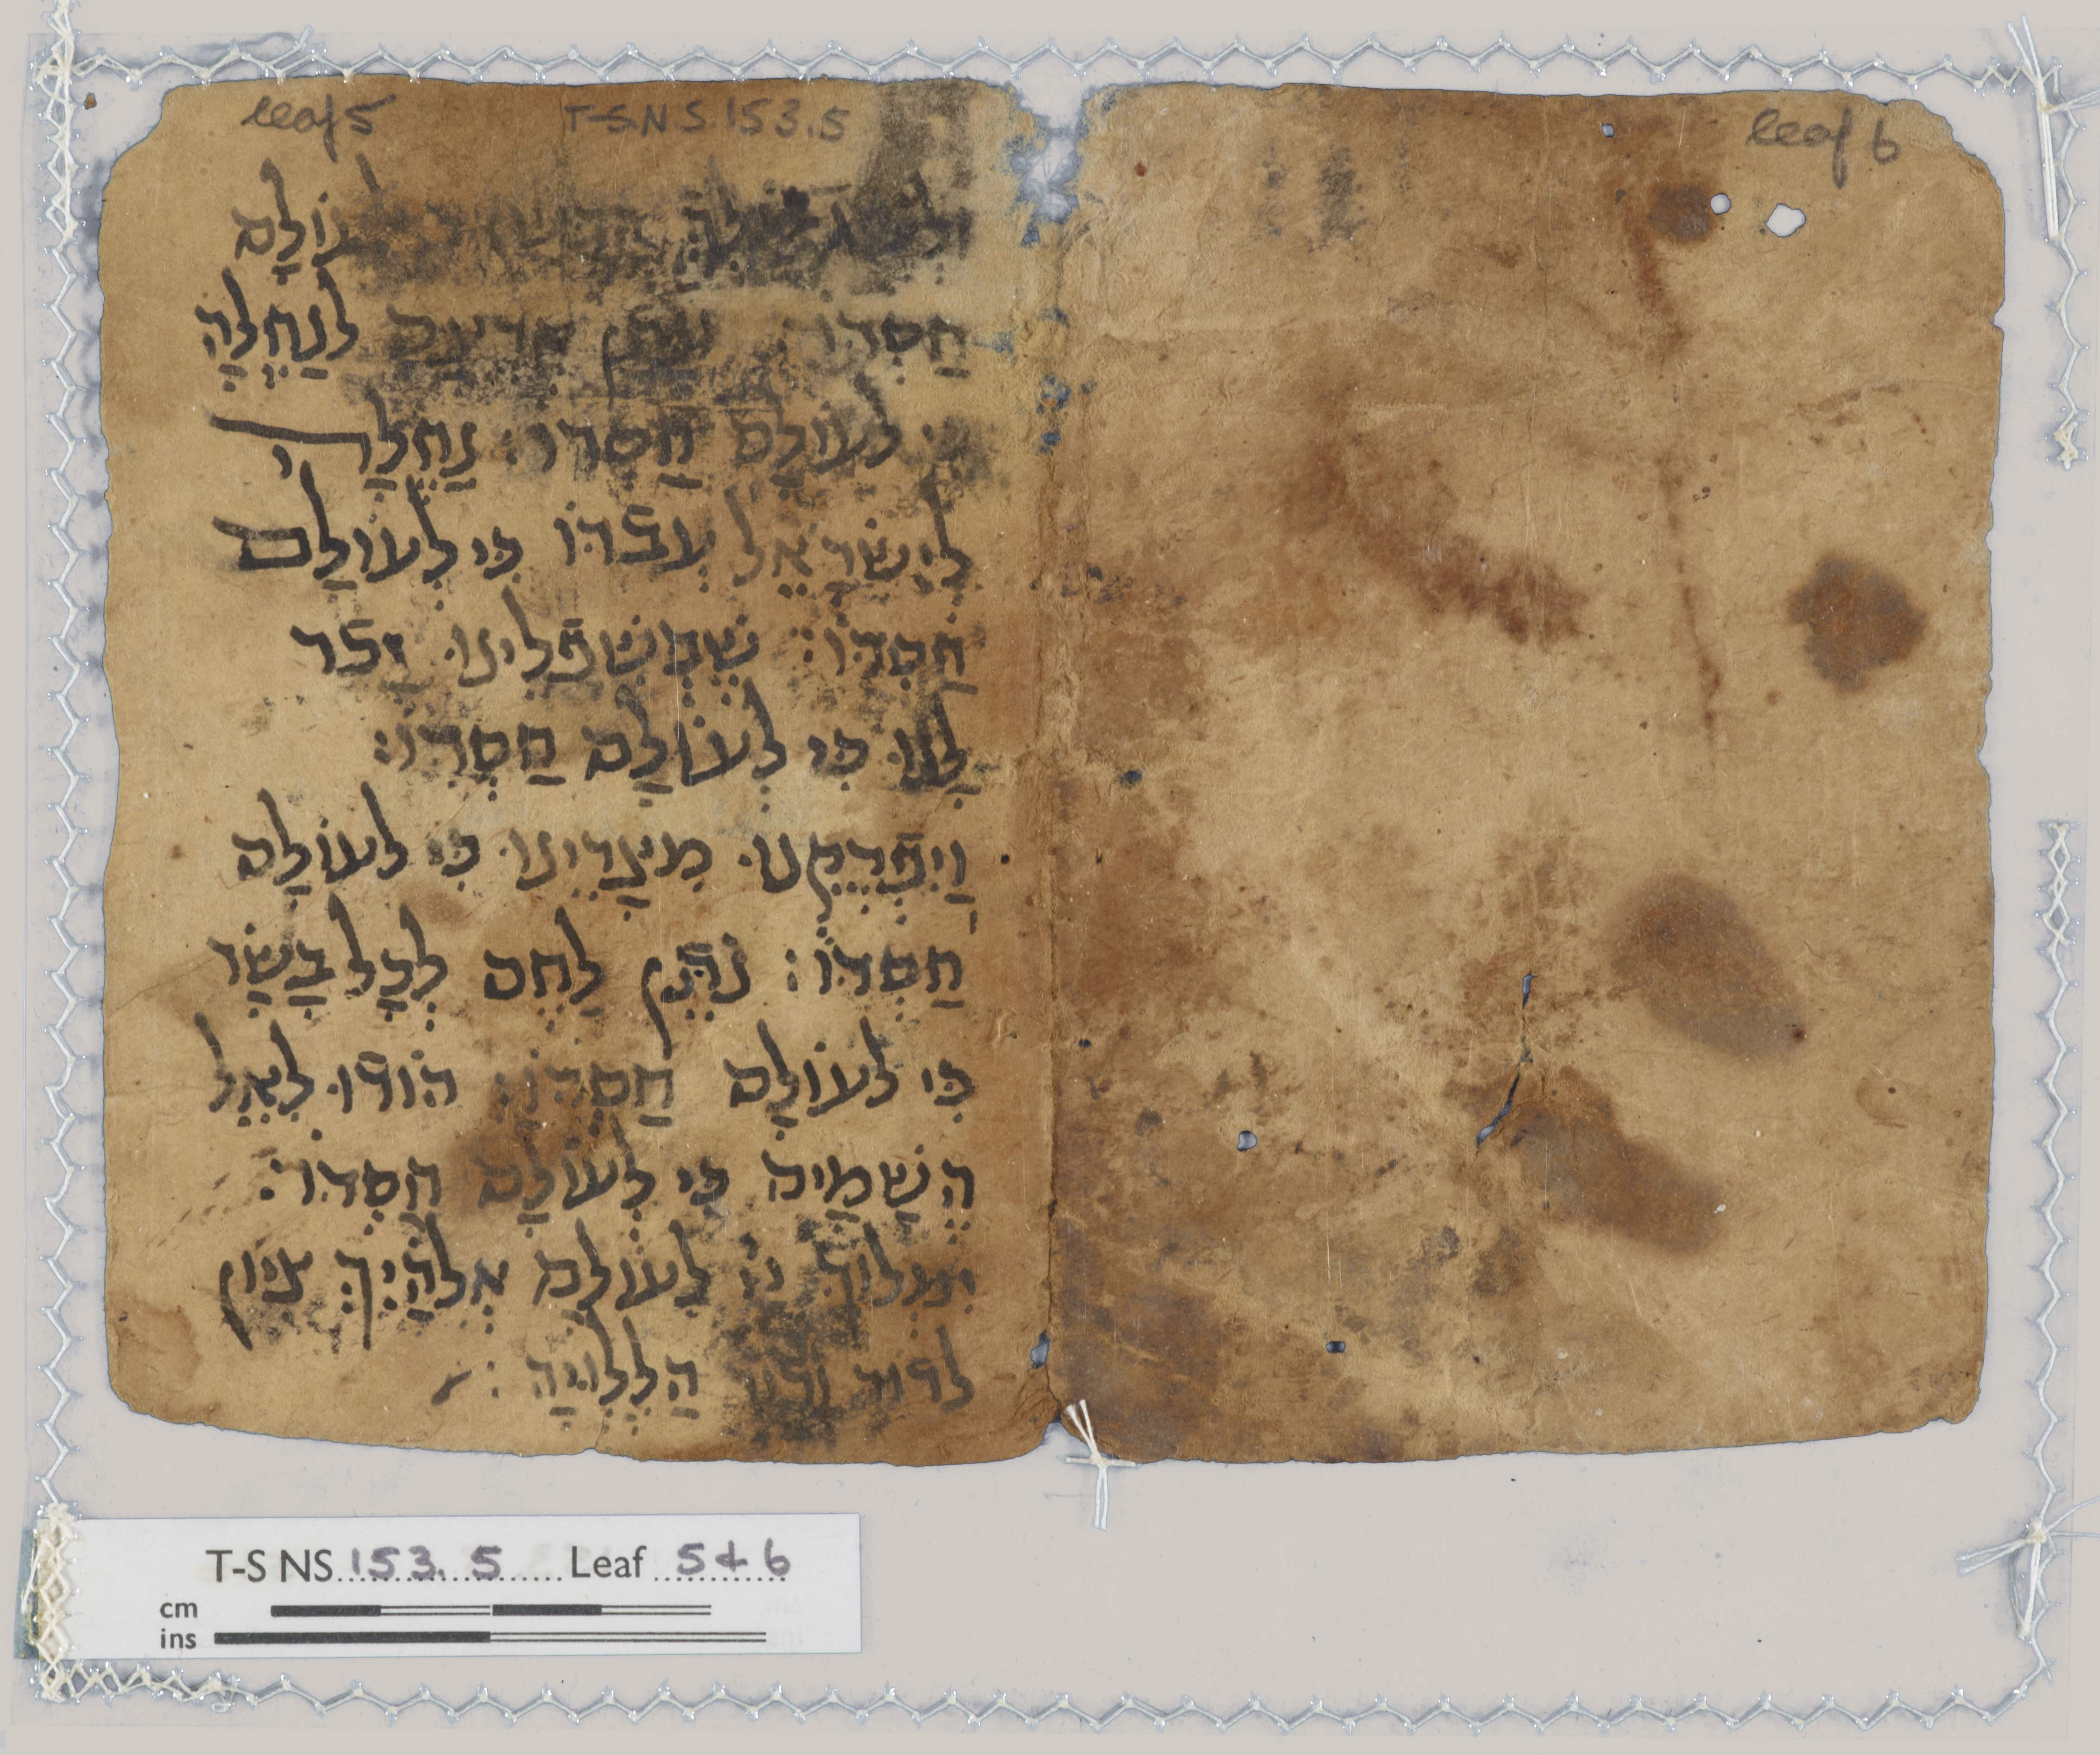 leaf 5
T-S N S 153.5
leaf 6
עוֹלָם
חַסְדּוֹ: נֹתֵן אַרצָם לְנַחֲלָה
כי לעוֹלָם חַסְדּוֹ: נַחֲלָה
לְיִשׂרָאֵל עַבדּוֹ כִּי לְעוֹלַם
חַסְדּוֹ: שֶׁבְּשִׁפֿלֵינוּ זָכֿר
לָנוּ כִּי לְעוֹלַם חַסְדּוֹ:
וַיִפְרְקֵנוּ מִצָרֵינוּ כִּי לעוֹלָם
חַסְדּוֹ: נֹתֵן לַחֶם לְכָל בָּשָׂר
כִּי לעוֹלָם חַסְדּוֹ: הוֹדוּ לְאֵל
הֲשָׁמַיִם כִּי לְעוֹלָם חַסְדּוֹ:
יִמְלוֹךְ יי לְעוֹלָם אְלֹהַיִךְ ציון
לדור ודור הַלְלוּיָהּ :
T-S NS 153.5 Leaf 5 & 6
cm
ins